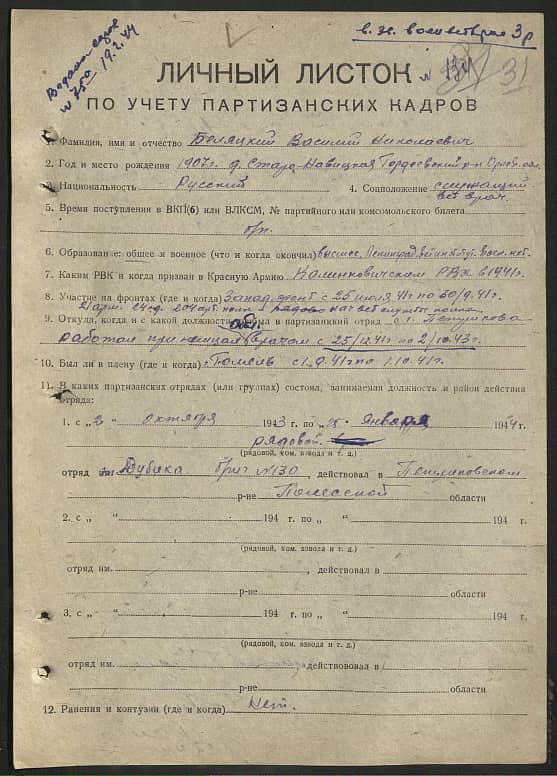 в. ж. 3 р
Выдана
№ 750 19.2.44
ЛИЧНЫЙ ЛИСТОК № 134 31
ПО УЧЕТУ ПАРТИЗАНСКИХ КАДРОВ
1. Фамилия, имя и отчество Беляцкий Василий Николаевич
2. Год и место рождения 1907 г. д. Старо-Новицкая Гордеевский р-н Орлов. обл.
3. Национальность Русский 4. Соцположение служащий
вет врач.
5. Время поступления в ВКП(б) или ВЛКСМ, № партийного или комсомольского билета
б/п.
6. Образование: общее и военное (что и когда окончил) высшее, Ленинград. вет институт. воен. нет.
7. Каким РВК и когда призван в Красную Армию Калинковичским РВК в 1941 г.
8. Участие на фронтах (где и когда) Запад. фронт с 25 июля 41 г по 30/9. 41 г.
21 арм. полк рядово нач вет службы полка
9. Откуда, когда и с какой должности в партизанский отряд с г.
работал при немцах врачом с 25/12.41 г по 2/10.43 г.
10. Был ли в плену (где и когда) Гомель с 1.9.41 г по 1.10.41 г.
11. В каких партизанских отрядах (или группах) состоял, занимаемая должность и район действия
отряда:
1. с „ 2 “ октября 1943 г. по „ 15 “ января 1944 г.
рядовой
(рядовой, ком. взвода и т. д.)
отряд им. Дубика Бриг № 130, действовал в
р-не Полесской области
2. с „ “ 194 г. по „ “ 194 г.
(рядовой, ком. взвода и т. д.)
отряд им. , действовал в
р-не области
3. с „ “ 194 г. по „ “ 194 г.
(рядовой, ком. взвода и т. д.)
отряд им. действовал в
р-не области
12. Ранения и контузии (где и когда) Нет.